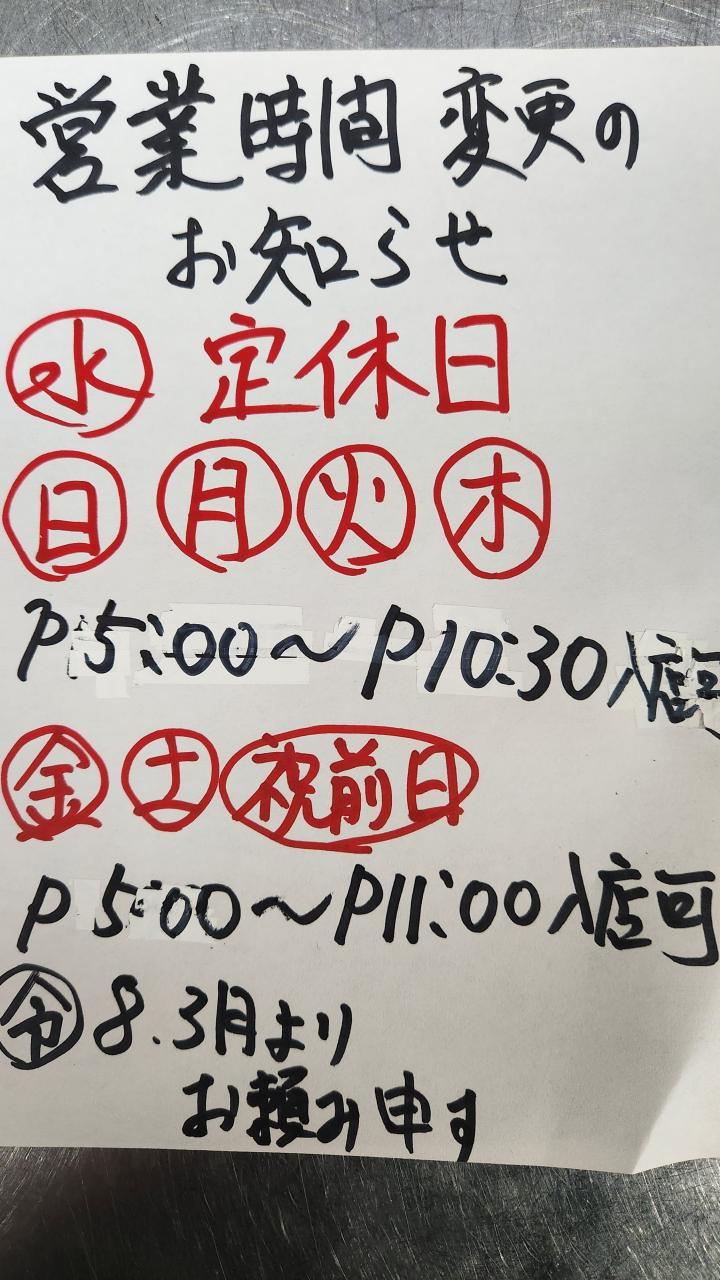 営業時間変更の
お知らせ
水 定休日
日 月 火 木
P5:00～P10:30入店可
金 土 祝前日
P5:00～P11:00入店可
令8.3月より
お頼み申す